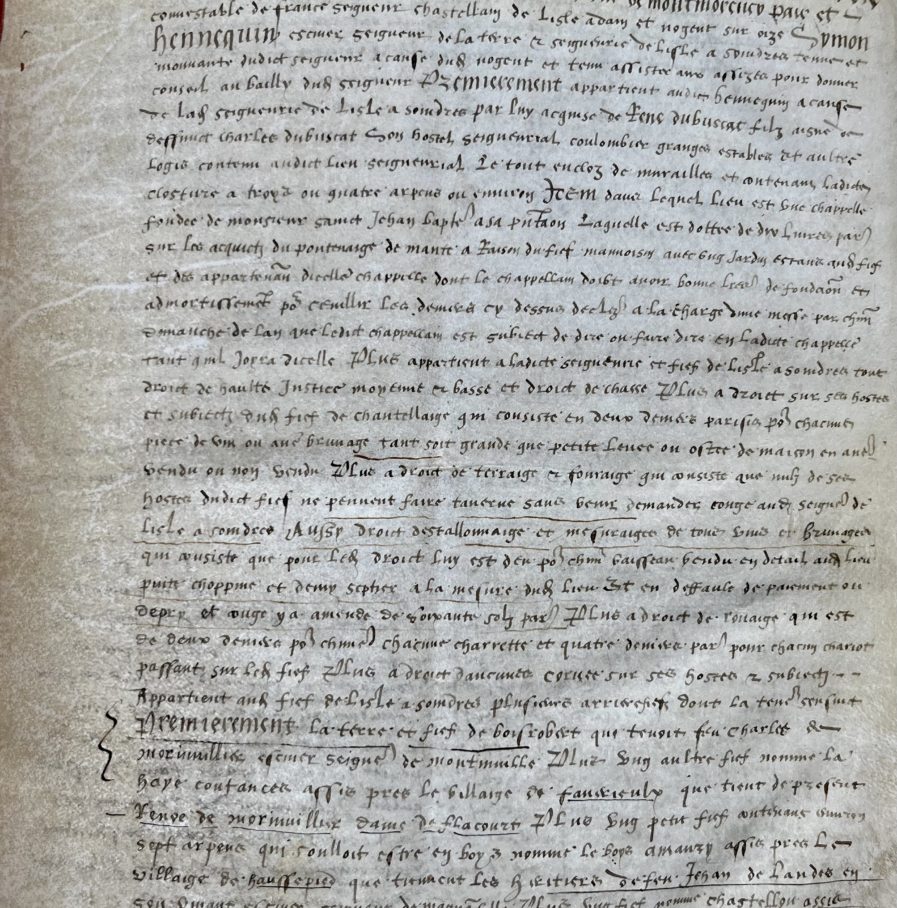 connestable de france seigneur chastellain de Lisle adam et nogent sur oize Symon
Hennequin escuier seigneur de la terre & seigneurie de Lisle a sondres tenue et
mouvante dudict seigneur a cause dud nogent et tenu assister aux assizes pour donner
conseil au bailly dud seigneur Premierement appartient audict hennequin a cause
de lad seigneurie de Lisle a sondres par luy acquise de Rene dubuscat filz aisne de
deffunct charles dubuscat Son hostel seigneurial coulombier granges estables et aultre
logis contenu audict lieu seigneurial Le tout encloz de murailles et contenant ladicte
closture a troys ou quatre arpens ou environ Item dans lequel lieu est une chappelle
fondee de monsieur sainct Jehan baptē a sa Laquelle est dottee de dix livres par
sur les acquictz du pontenaige de mante a Raison du fief avec ung Jardin estans aud fief
et des appartenan dicelle chappelle dont le chappellain doibt avoir bonne de fondaon et
admortissement po cueillir les deniers cy dessus a la charge dune messe par chun
dimanche de lan que ledict chappellain est subiect de dire ou faire dire en ladicte chappelle
tant quil Joyra dicelle Plus appartient a ladicte seigneurie et fief de Lisle a sondres tout
droict de haulte Justice moyenne & basse et droict de chasse Plus a droict sur ses hostes
et subiectz dud fief de chantellaige qui consiste en deux deniers parisis po chacune
piece de vin ou aue bruvage tant soit grande que petite levee ou ostee de maison en aue
vendu ou non vendu Plus a droict de terraige & fouraige qui consiste que nulz de ses
hostes dudict fief ne peuvent faire taverne sans venir demander conge aud seigne de
Lisle a sondres Aussy droict destallonnaige et mesuraige de tous vins et bruvages
qui consiste que pour led droict luy est deu po chun vaisseau vendu en detail aud lieu
pinte choppine et demy septier a la mesure dud lieu Et en deffaulte de paiement ou
depry et conge y a amende de soixante solz par Plus a droict de rouaige qui est
de deux deniers po chune chacune charrette et quatre deniers par pour chacun chariot
passant sur led fief Plus a droict daucunes corvee sur ses hostes & subiectz
Appartient aud fief de Lisle a sondres plusieurs arrierefiefz dont la tene sensuit
Premierement La terre et fief de boisrobert que tenoit feu Charles de
mornvillier escuier seigne de montinville Plus ung aultre fief nomme la
haye coutances assis pres le villaige de favrieulx que tient de present
Renee de mornvillier dame de flacourt Plus ung petit fief contenant environ
sept arpens qui soulloit estre en boys nomme le boys amaury assis pres le
villaige de haussepied que tiennent les heritiers de feu Jehan de Landes en
son vivant escuier seigneur de Plus ung fief nomme chastellon assis